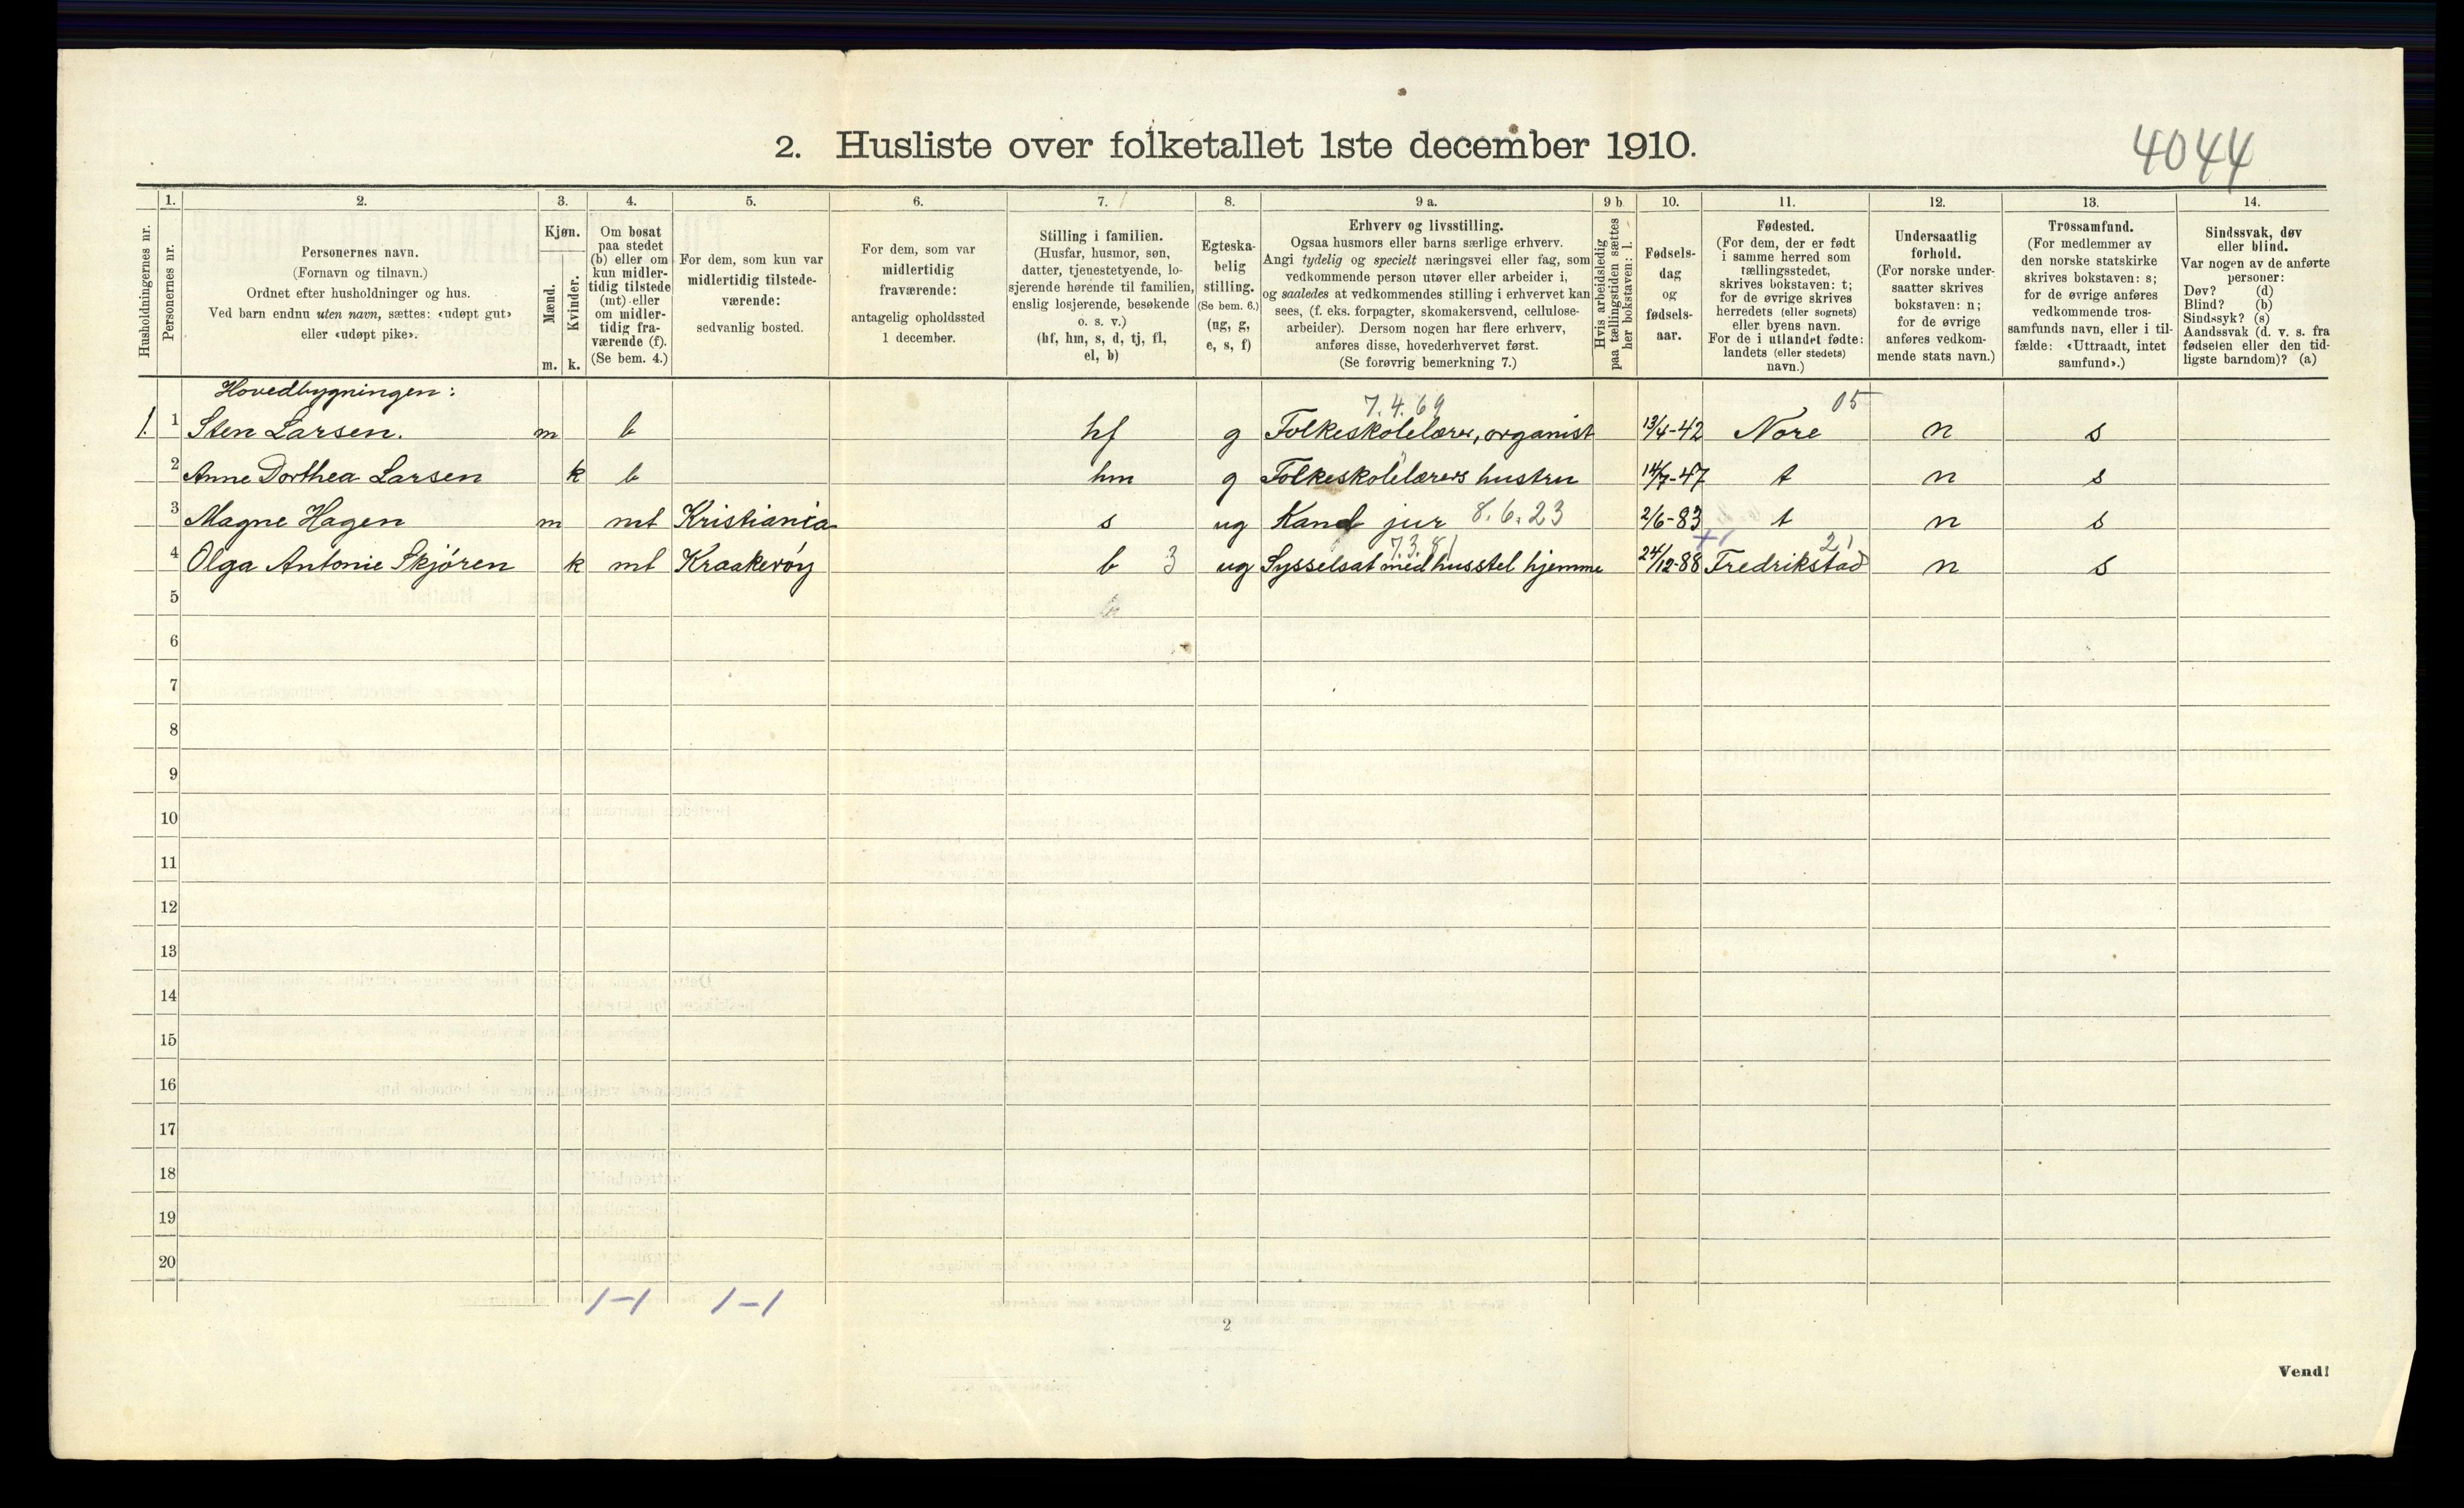 2. Husliste over folketallet 1ste december 1910.
4044
Husholdningernes nr.
1. Personernes nr.
2. Personernes navn.
(Fornavn og tilnavn.)
Ordnet efter husholdninger og hus.
Ved barn endnu uten navn, sættes: «udøpt gut»
eller «udøpt pike».
3. Kjøn.
Mænd. m.
Kvinder. k.
4. Om bosat
paa stedet
(b) eller om
kun midler-
tidig tilstede
(mt) eller
om midler-
tidig fra-
værende (f).
(Se bem. 4.)
5. For dem, som kun var
midlertidig tilstede-
værende:
sedvanlig bosted.
6. For dem, som var
midlertidig
fraværende:
antagelig opholdssted
1 december.
7. Stilling i familien.
(Husfar, husmor, søn,
datter, tjenestetyende, lo-
sjerende hørende til familien,
enslig losjerende, besøkende
o. s. v.)
(hf, hm, s, d, tj, fl,
el, b)
8. Egteska-
belig
stilling.
(Se bem. 6.)
(ug, g,
e, s, f)
9 a. Erhverv og livsstilling.
Ogsaa husmors eller barns særlige erhverv.
Angi tydelig og specielt næringsvei eller fag, som
vedkommende person utøver eller arbeider i,
og saaledes at vedkommendes stilling i erhvervet kan
sees, (f. eks. forpagter, skomakersvend, cellulose-
arbeider). Dersom nogen har flere erhverv,
anføres disse, hovederhvervet først.
(Se forøvrig bemerkning 7.)
9 b. Hvis arbeidsledig
paa tællingstiden sættes
her bokstaven: l.
10. Fødsels-
dag
og
fødsels-
aar.
11. Fødested.
(For dem, der er født
i samme herred som
tællingsstedet,
skrives bokstaven: t;
for de øvrige skrives
herredets (eller sognets)
eller byens navn.
For de i utlandet fødte:
landets (eller stedets)
navn.)
12. Undersaatlig
forhold.
(For norske under-
saatter skrives
bokstaven: n;
for de øvrige
anføres vedkom-
mende stats navn.)
13. Trossamfund.
(For medlemmer av
den norske statskirke
skrives bokstaven: s;
for de øvrige anføres
vedkommende tros-
samfunds navn, eller i til-
fælde: «Uttraadt, intet
samfund».)
14. Sindssvak, døv
eller blind.
Var nogen av de anførte
personer:
Døv? (d)
Blind? (b)
Sindssyk? (s)
Aandssvak (d. v. s. fra
fødselen eller den tid-
ligste barndom)? (a)
Hovedbygningen:
7.4.69 05
1. 1 Sten Larsen. m b hf g Folkeskolelærer, organist 13/4-42 Nore n s
2 Anne Dorthea Larsen k b hm g Folkeskolelærers hustru 14/7-47 t n s
3 Magne Hagen m mt Kristiania s ug Kand jur 8.6.23 2/6-83 t n s
7.3.81 21
4 Olga Antonie Skjören k mt Kraakeröy b 3 ug Sysselsat med husstel hjemme 24/12-88 Fredrikstad n s
5
6
7
8
9
10
11
12
13
14
15
16
17
18
19
20
1-1 1-1
2
Vend!